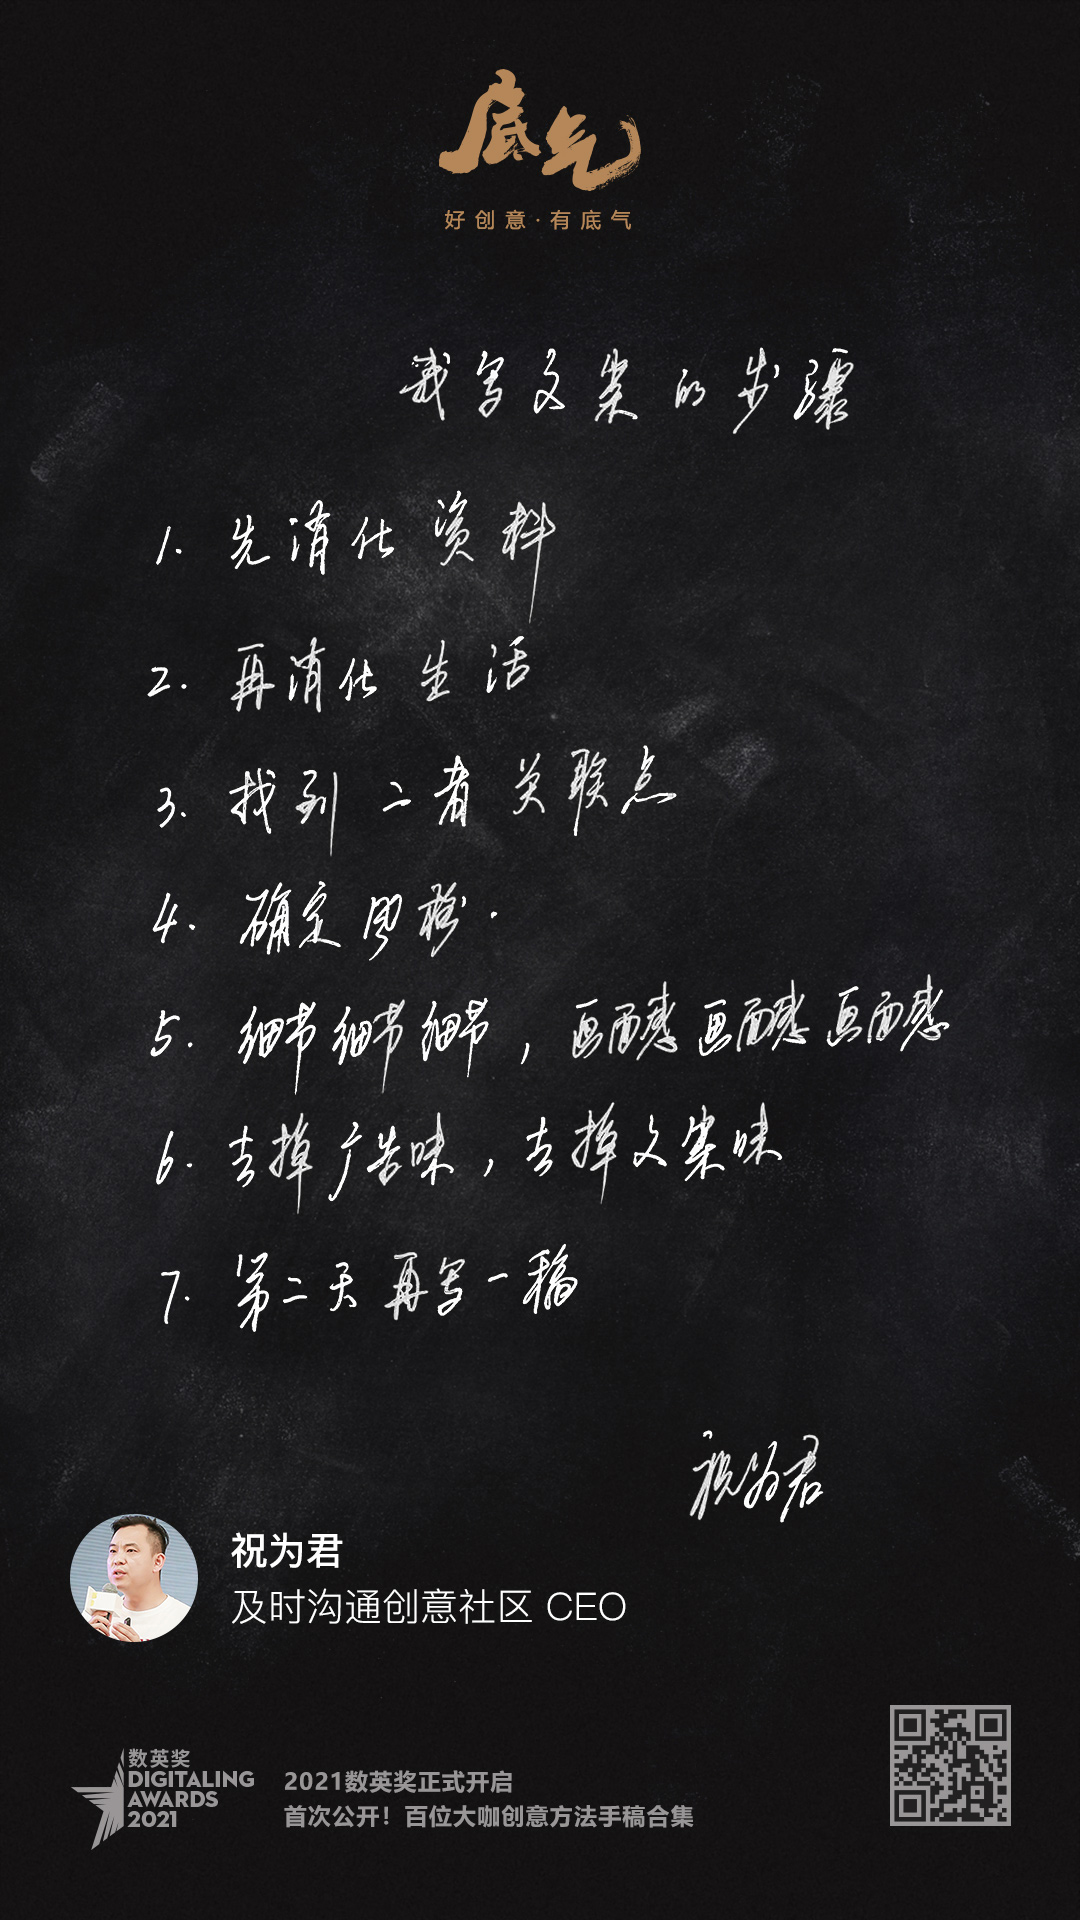 底气
好创意·有底气
我写文案的步骤
1. 先消化资料
2. 再消化生活
3. 找到二者关联点
4. 确定风格.
5. 细节细节细节，画面感画面感画面感
6. 去掉广告味，去掉文案味
7. 第二天再写一稿
祝为君
祝为君
及时沟通创意社区 CEO
数英奖
DIGITALING
AWARDS
2021
2021数英奖正式开启
首次公开！百位大咖创意方法手稿合集